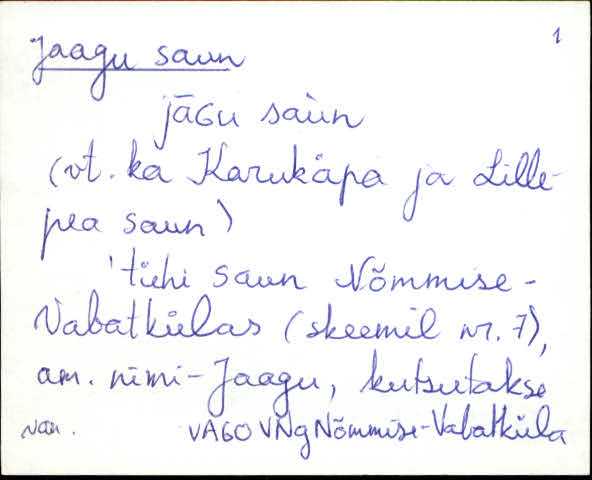 1
Jaagu saun
jāGu saùn
(vt. ka Karukäpa ja Lille-
pea saun)
'tühi saun Nõmmise-
Vabatkülas (skeemil nr. 7),
am. nimi - Jaagu, kutsutakse
Vän. VAGO VNg Nõmmise-Vabatküla